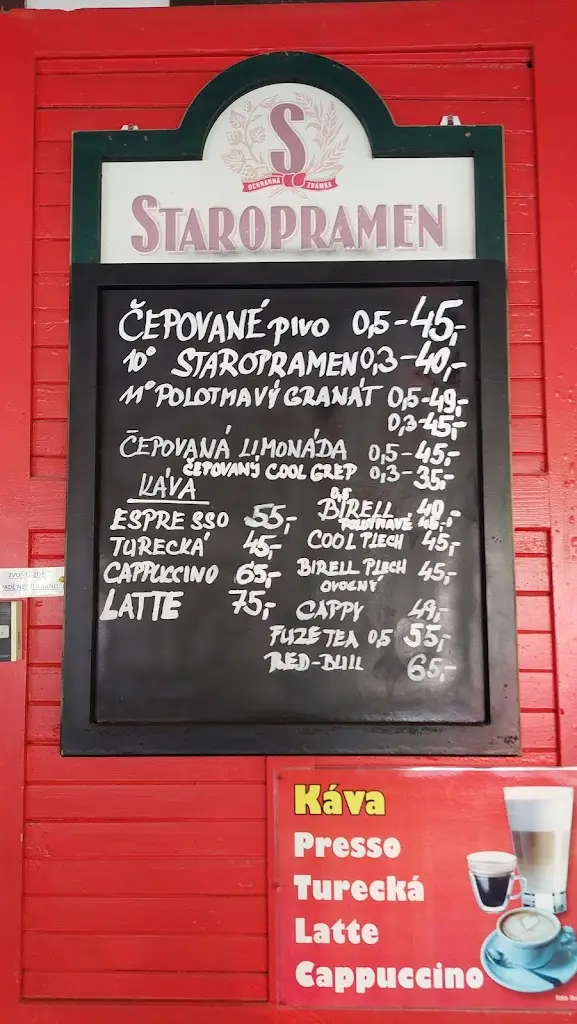 S
OCHRANNÁ ZNÁMKA
STAROPRAMEN
ČEPOVANÉ pivo 0,5-45,-
10° STAROPRAMEN 0,3-40,-
11° POLOTMAVÝ GRANÁT 0,5-49,-
0,3-45,-
ČEPOVANÁ LIMONÁDA 0,5-45,-
ČEPOVANÝ COOL GREP 0,3-35,-
KÁVA
ESPRESSO 55,-
TURECKÁ 45,-
CAPPUCCINO 65,-
LATTE 75,-
0,5
BIRELL 40,-
POLOTMAVÉ 45,-
COOL PLECH 45,-
BIRELL PLECH 45,-
OVOCNÝ
CAPPY 49,-
FUZE TEA 0,5 55,-
RED-BULL 65,-
Káva
Presso
Turecká
Latte
Cappuccino